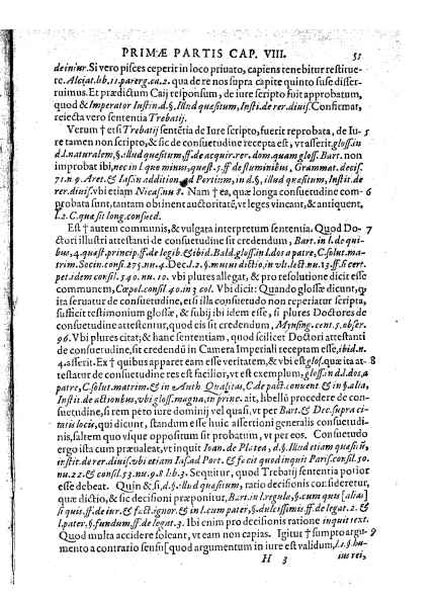 PRIMÆ PARTIS CAP. VIII. 51
de iniur. Si vero pisces ceperit in loco priuato, capiens tenebitur restitue-
re. Alciat. lib. 11. parerg. ca. 2. qua de re nos supra capite quinto fuse disser-
ruimus. Et prædictum Caij responsum, de iure scripto fuit approbatum,
quod & Imperator Iustin. d. §. Illud quæsitum, Insti. de rer. diuis. Confirmat,
reiecta vero sententia Trebatij.
Verum † etsi Trebatij sentētia de Iure scripto, fuerit reprobata, de Iu- 5
re tamen non scripto, & sic de consuetudine recepta est, vt asserit, gloss. in
d. l. naturalem, §. illud quæsitum, ff. de acquir. rer. dom. quam gloss. Bart. non
improbat ibi, nec in l. quo minus, quæst. 5. ff. de fluminibus, Grammat. decis.
71. n. 9. Aret. & Ias. in addition. ad Portium, in d. §. illud quæsitum, Instit. de
rer. diuis. vbi etiam Nicas. nu. 8. Nam † ea, quæ longa consuetudine com- 6
probata sunt, tantam obtinent auctoritatē, vt leges vincant, & antiquent,
l. 2. C. quæ sit long. consued.
Est † autem communis, & vulgata interpretum sententia. Quod Do- 7
ctori illustri attestanti de consuetudine sit credendum, Bart. in l. de quibus,
4. quæst. princip. ff. de legib. & ibid. Bald. gloss. in l. dos a patre, C. solut. ma-
trim. Socin. consil. 275. nu. 4. Dec. l. 2. §. mutui dictio, in vlt. lect. nu. 13. ff. si cert.
pet. idem consil. 540. nu. 10. vbi plures allegat, & pro resolutione dicit esse
communem, Cæpol. consil. 40. in 3 col. Vbi dicit: Quando glossæ dicunt, q
ita seruatur de consuetudine, etsi illa consuetudo non reperiatur scripta,
sufficit testimonium glossæ, & subij ibi idem esse, si plures Doctores de
consuetudine attestentur, quod eis sit credendum, Mynsing. cent. 5. obser.
96. Vbi plures citat; & hanc sententiam, quod scilicet Doctori attestanti
de consuetudine, sit credendū in Camera Imperiali receptam esse, ibid. n.
4. asserit. Ex † quibus apparet eam esse veritatem, & vbi est glossa, quæ ita at- 8
testatur de consuetudine res est facilior, vt est exemplum, gloss. in d. l. dos, a
patre, C. solut. matrim. & in Auth. Qualitas, C. de pact. conuent. & in §. alia,
Instit. de actionibus, vbi gloss. magna, in princ. ait, libellō procedere de con-
suetudine, si rem peto iure dominij vel quasi, vt per Bart. & Dec. supra ci-
tatis locis, qui dicunt, standum esse huic assertioni generalis consuetudi-
nis, saltem quo vsque oppositum sit probatum, vt per eos. Consuetudo
ergo ista cum præualeat, vt inquit Ioan. de Platea, d. §. Illud etiam quæsitū,
instit. de rer. diuis. vbi etiam Ias. ad Port. & fecit quod inquit Paris. consil. 30.
nu. 22. & consil. 53. nu. 9 8. lib. 3. Sequitur, quod Trebatij sententia potior
esse debeat. Quin & si, d. §. illud quæsitum, ratio decisionis consideretur,
quæ dictio, & si decisioni præponitur, Bart. in l. regula, §. cum quis [alias]
si quis, ff. de iur. & fact. ignor. & in l. cum pater, §. dulcissimis ff. de legat. 2. &
l. pater. §. fundum. ff. de legat. 3. Ibi enim pro decisionis ratione inquit text.
Quod multa accidere soleant, vt eam non capias. Igitur † sumpto argu- 9
mento a contrario sensū [quod argumentum in iure est validum, l. 1. §. hu-
H 3 ius rei,